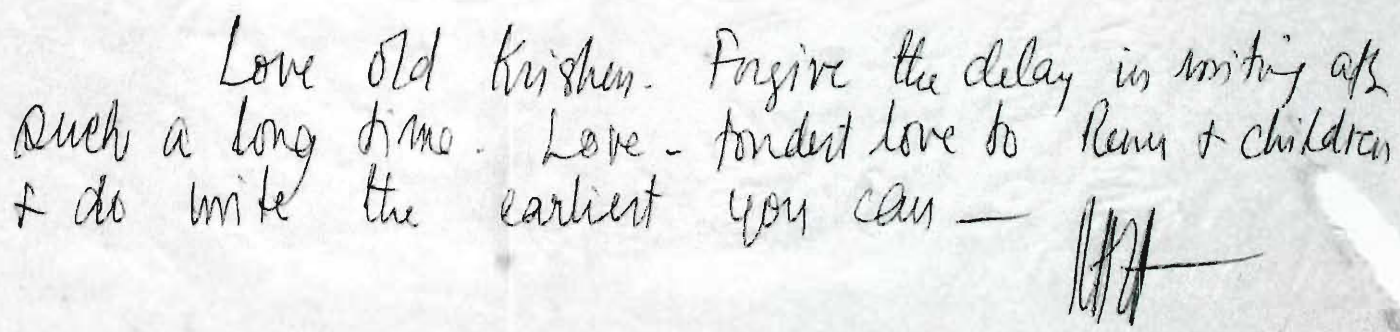 Love old Krishen. Forgive the delay in writing aft
such a long time. Love - fondest love to Renu + children
+ do write the earliest you can —